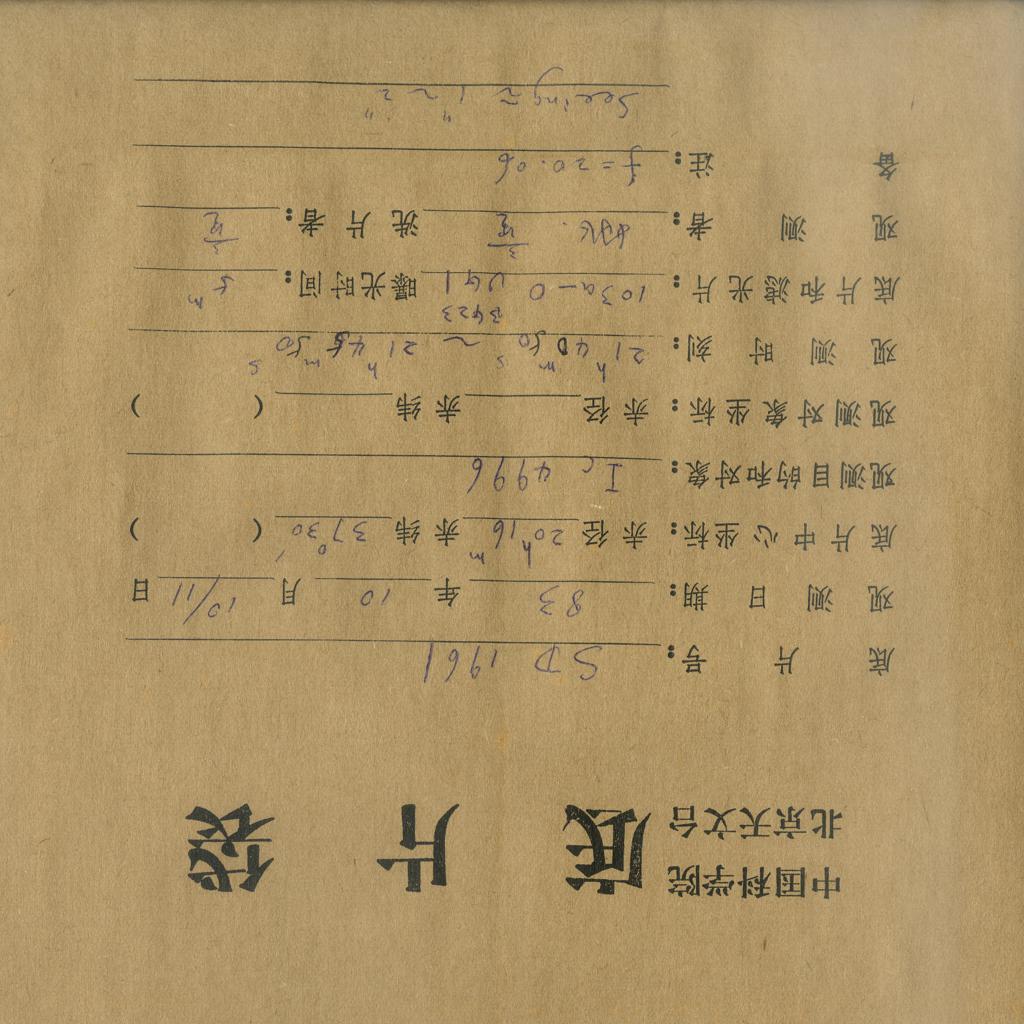 中国科学院
北京天文台 底片袋
底片号: SD 1961
观测日期: 83 年 10 月 10/11 日
底片中心坐标: 赤径 20h16m 赤纬 37°30′ ( )
观测目的和对象: Ic 4996
观测对象坐标: 赤径 赤纬 ( )
观测时刻: 21h40m50s ~ 21h45m50s
3423
底片和滤光片: 103a-O UG1 曝光时间: 5m
观测者: 洗片者:
备注: f=20.06
Seeing ≈ 1″~2″